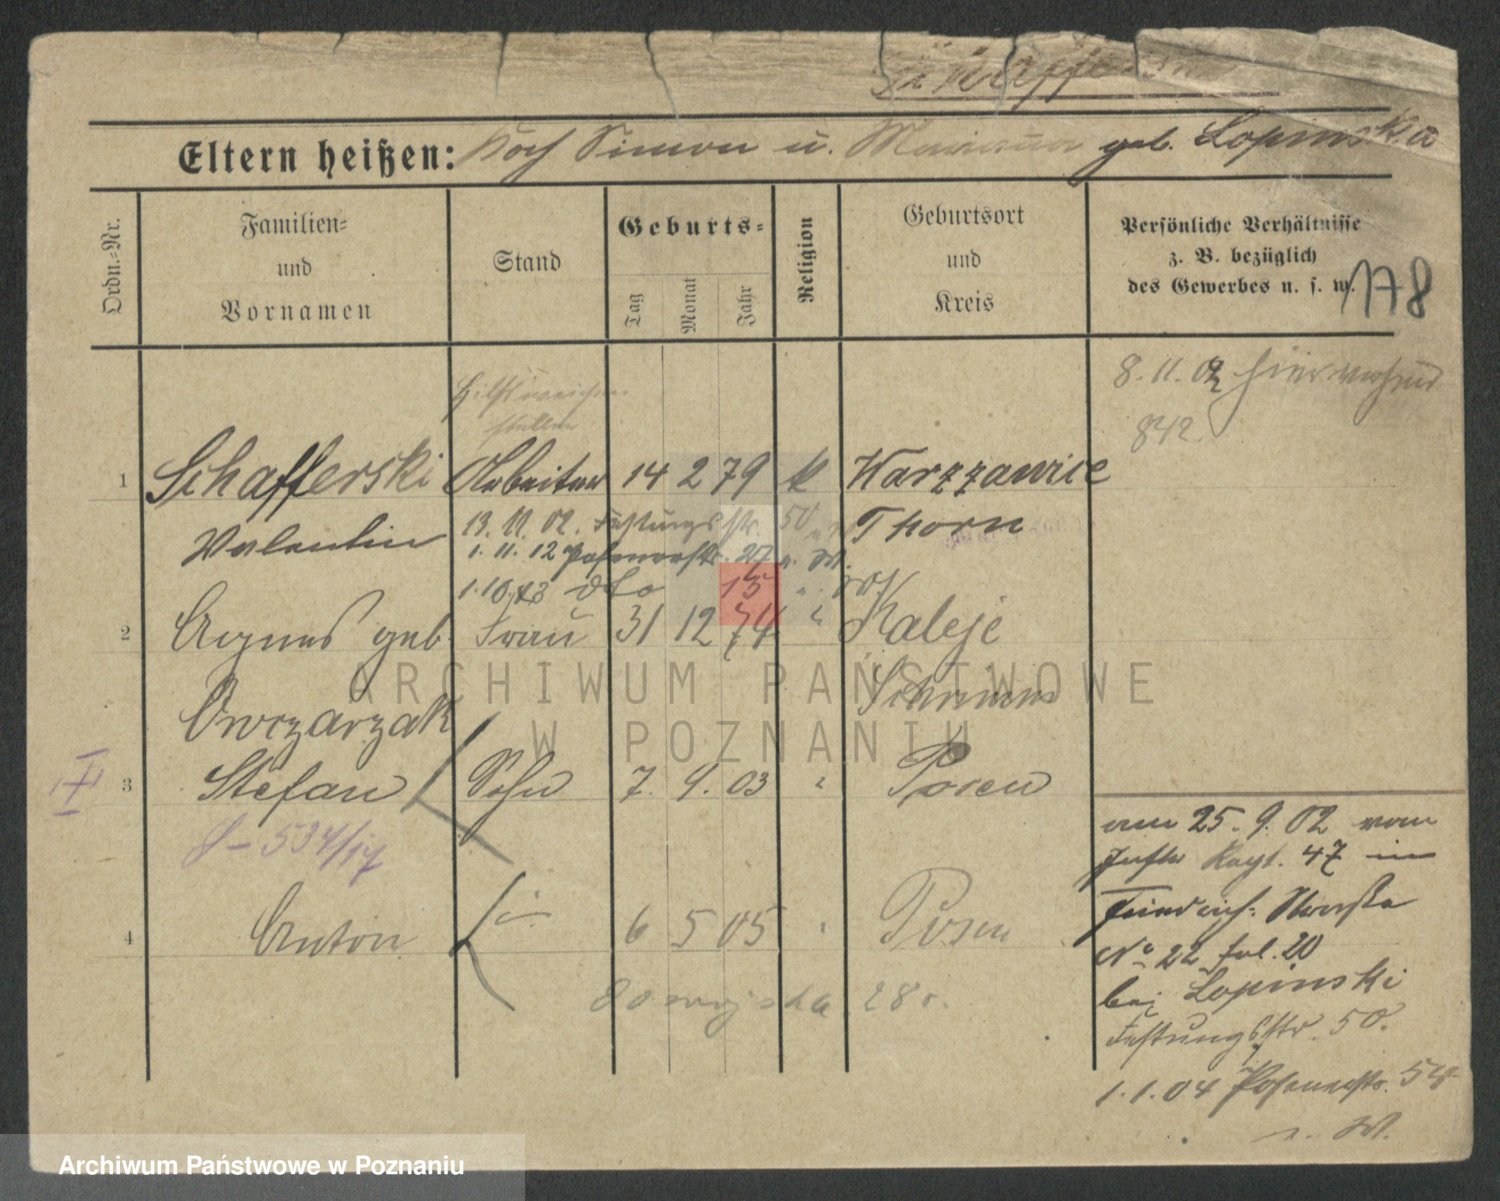 Eltern heißen: Koch Simon u. Marianna geb. Lopinska
Ordn.=Nr.
Familien=
und
Vornamen
Stand
Geburts=
Tag
Monat
Jahr
Religion
Geburtsort
und
Kreis
Persönliche Verhältnisse
z. B. bezüglich
des Gewerbes u. s. w.
178
8. 11. 02
842
1 Schafferski Arbeiter 14 2 79 k Warzzawice
Valentin
13. 11. 02. Festungsstr. 50
Thorn
1. 11. 12 Posenerstr. 27
1. 10. 13 dto 15
2 Agnes geb. Frau 31 12 74 " Kaleje
Owczarzak
Schrimm
3 Stefan Sohn 7. 9. 03 " Posen
4 Anton 6 5 05 " Posen
Do wojska 28 r.
am 25. 9. 02 vom
Inftr Regt. 47 in
Friedrich=Strasse
No 22 fol. 20
bei Lopinski
Festungsstr. 50.
1. 1. 04 Posenerstr. 54
ARCHIWUM PAŃSTWOWE
W POZNANIU
Archiwum Państwowe w Poznaniu